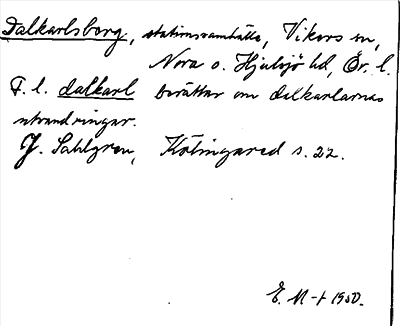 Dalkarlsberg, stationssamhälle, Vikers sn,
Nora o. Hjulsjö hd, Ör. l.
F. l. dalkarl berättar om dalkarlarnas
utvandringar.
J. Sahlgren, Kölingared s. 22.
E. M-t 1950.